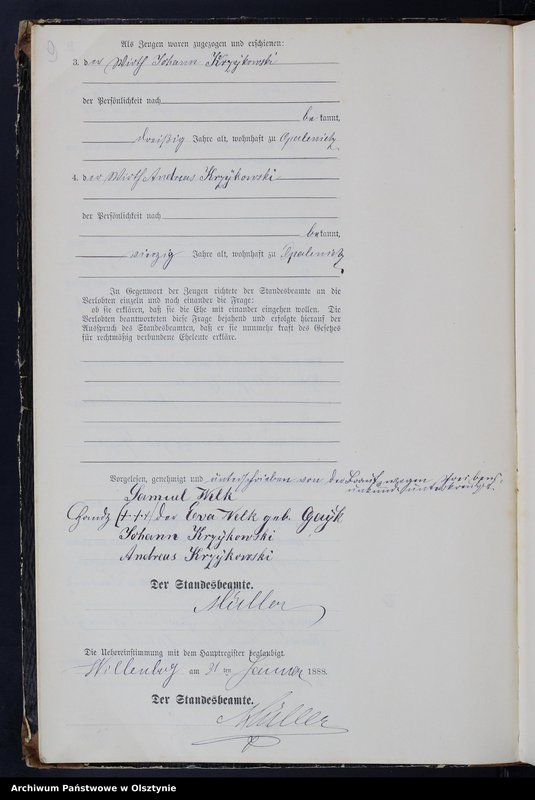 Als Zeugen waren zugezogen und erschienen:
3. der Wirth Johann Krzykowski
der Persönlichkeit nach
be kannt,
dreißig Jahre alt, wohnhaft zu Opalenietz
4. der Wirth Andreas Krzykowski
der Persönlichkeit nach
bekannt,
vierzig Jahre alt, wohnhaft zu Opalenietz
In Gegenwart der Zeugen richtete der Standesbeamte an die
Verlobten einzeln und nach einander die Frage:
ob sie erklären, daß sie die Ehe mit einander eingehen wollen. Die
Verlobten beantworteten diese Frage bejahend und erfolgte hierauf der
Ausspruch des Standesbeamten, daß er sie nunmehr kraft des Gesetzes
für rechtmäßig verbundene Eheleute erkläre.
Vorgelesen, genehmigt und unterschrieben von der Braut wegen Schreibens-
unkunde unterkreuzt.
Samuel Welk
Handz (+++) der Eva Welk geb. Gayk
Johann Krzykowski
Andreas Krzykowski
Der Standesbeamte.
Müller
Die Uebereinstimmung mit dem Hauptregister beglaubigt.
Willenberg am 31 ten Januar 1888.
Der Standesbeamte.
Müller
Archiwum Państwowe w Olsztynie